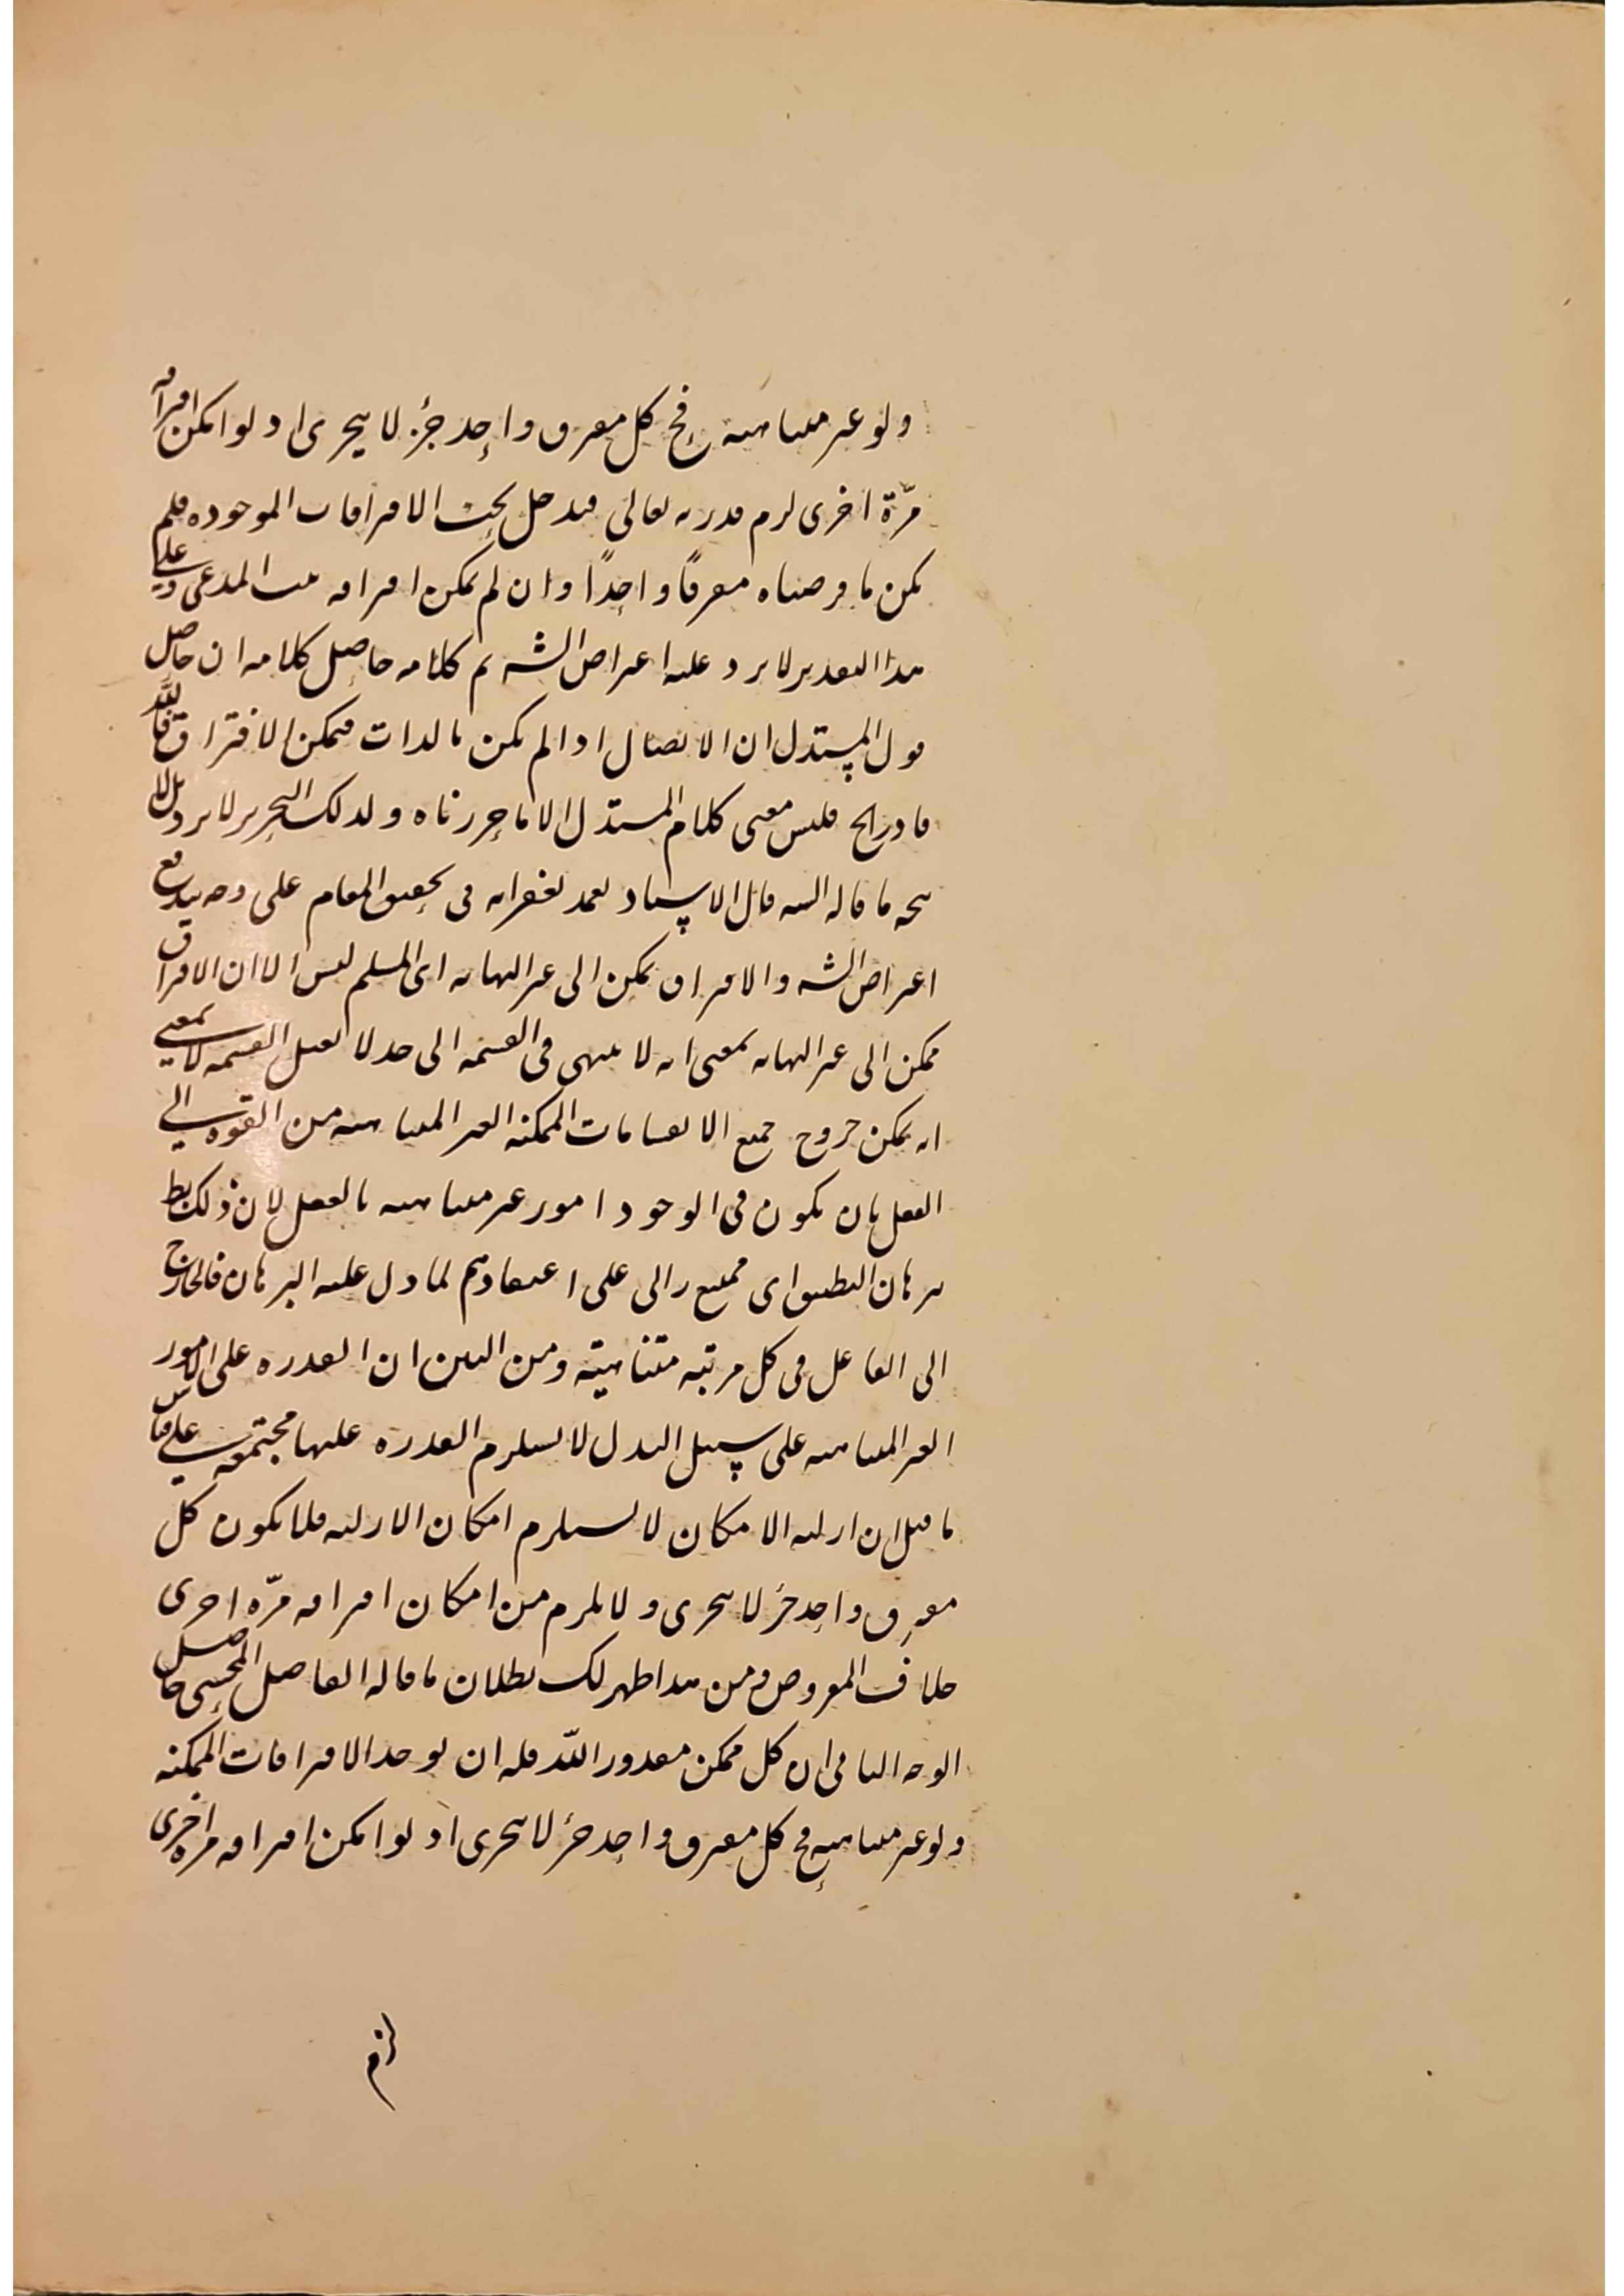 ولو غير متناهية فح كل مفترق واحد جزء لا يتجزى اذ لو امكن افتراقه
مرّة اخرى لزم قدرته تعالى فيدخل تحت الافتراقات الموجوده فلم
يكن ما فرضناه مفترقًا واحدًا وان لم يكن افتراقه ثبت المدعى وعلى
هذا التقدير لا يرد عليه اعتراض الشه تم كلامه حاصل كلامه ان حاصل
قول المستدل ان الاتصال اذا لم يكن بالذات فيمكن الافتراق فالله
قادر الخ فليس معنى كلام المستدل الا ما حررناه ولذلك التحرير لا يرد
عليه ما قاله الشه قال الاستاد تغمد بغفرانه فى تحقيق المقام على وجه يندفع
اعتراض الشه والافتراق يمكن الى غير النهايه اى المسلم ليس الا ان الافتراق
ممكن الى غير النهايه بمعنى انه لا ينتهى فى القسمه الى حد لا يقبل القسمه لا بمعنى
انه يمكن خروج جميع الانقسامات الممكنه الغير المتناهيه من القوه الى
الفعل بان يكون فى الوجود امور غير متناهيه بالفعل لان ذلك بط
ببرهان التطبيق اى ممتنع على اعتقادهم لما دل عليه البرهان فالخارج
الى الفاعل فى كل مرتبه متناهية ومن البين ان القدره على الامور
الغير المتناهيه على سبيل البدل لا يستلزم القدره عليها مجتمعه على قياس
ما قيل ان ازليه الامكان لا يستلزم امكان الازليه فلا يكون كل
مفترق واحد جزء لا يتجزى ولا يلزم من امكان افتراقه مرّه اخرى
خلاف المفروض ومن هذا ظهر لك بطلان ما قاله الفاضل المحشى حاصل
الوجه الثانى ان كل ممكن مقدور الله فله ان يوجد الافتراقات الممكنه
ولو غير متناهيه فح كل مفترق واحد جزء لا يتجزى اذ لو امكن افتراقه مره اخرى
لزم